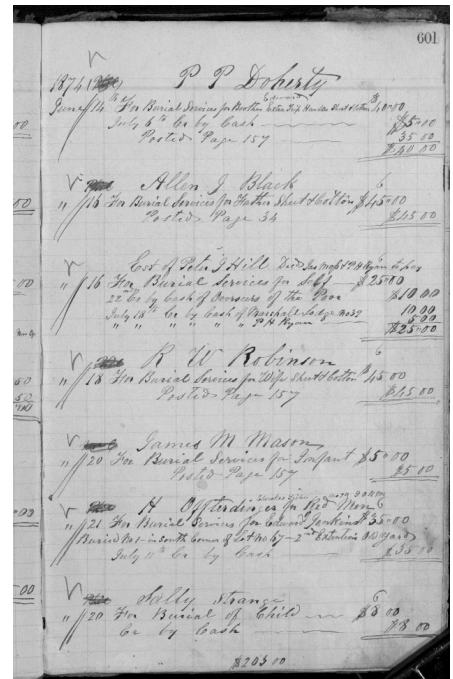 601
1874 P P Doherty
June 14th For Burial Services for Brother Edward Extra Trip Handles Sheet & Cotton $40.00
July 6th Cr by Cash $5.00
Posted Page 157 35.00
$40.00
Allen J Black 6
" 16 For Burial Services for Father Sheet & Cotton $45.00
Posted Page 34 $45.00
Est of Peter J Hill Decd Jas & P H Ryan to pay
" 16 For Burial Services for Self $25.00
22 Cr by Cash of Overseers of the Poor $10.00
July 18th Cr by Cash of Marshall Lodge No 39 10.00
" " " " " " P H Ryan 5.00
$25.00
R W Robinson 6
" 18 For Burial Services for Wife Sheet & Cotton $45.00
Posted Page 157 $45.00
James M Mason
" 20 For Burial Services for Infant $5.00
Posted Page 157 $5.00
H Offterdinger for Red Men 6
" 21 For Burial Services for Edward Jenkins $35.00
Buried No 1 in South Corner of Lot No 67 - 2nd Extention Old yard
July 11th Cr by Cash $35.00
Sally Strange 6
" 20 For Burial of Child $8.00
Cr by Cash $8.00
$203.00
00
00
00
50
50
00
00